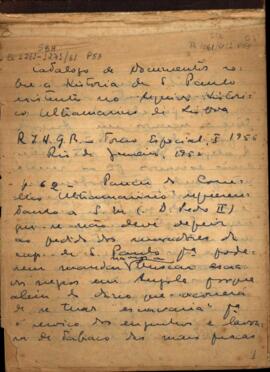 SBH
P53
Catalogo de Documentos so-
bre a Historia de S. Paulo
existentes no Arquivo Histori-
co Ultramarino de Lisboa
R.I.H.G.B. — Tomo Especial, I 1956
Rio de Janeiro, 1956
p. 62 — Parecer do Conse-
lho Ultramarino represen-
tando a S. M. (D. Pedro II)
que se não devi deferir
ao pedido dos moradores da
cap. de S. Paulo pª pode-
rem mandar buscar escra-
vos negros em Angola porque
alem do dano que ocorrerá
de se tirar escravaria pª
o serviço dos engenhos e lavou-
ra de tabaco das mais
1